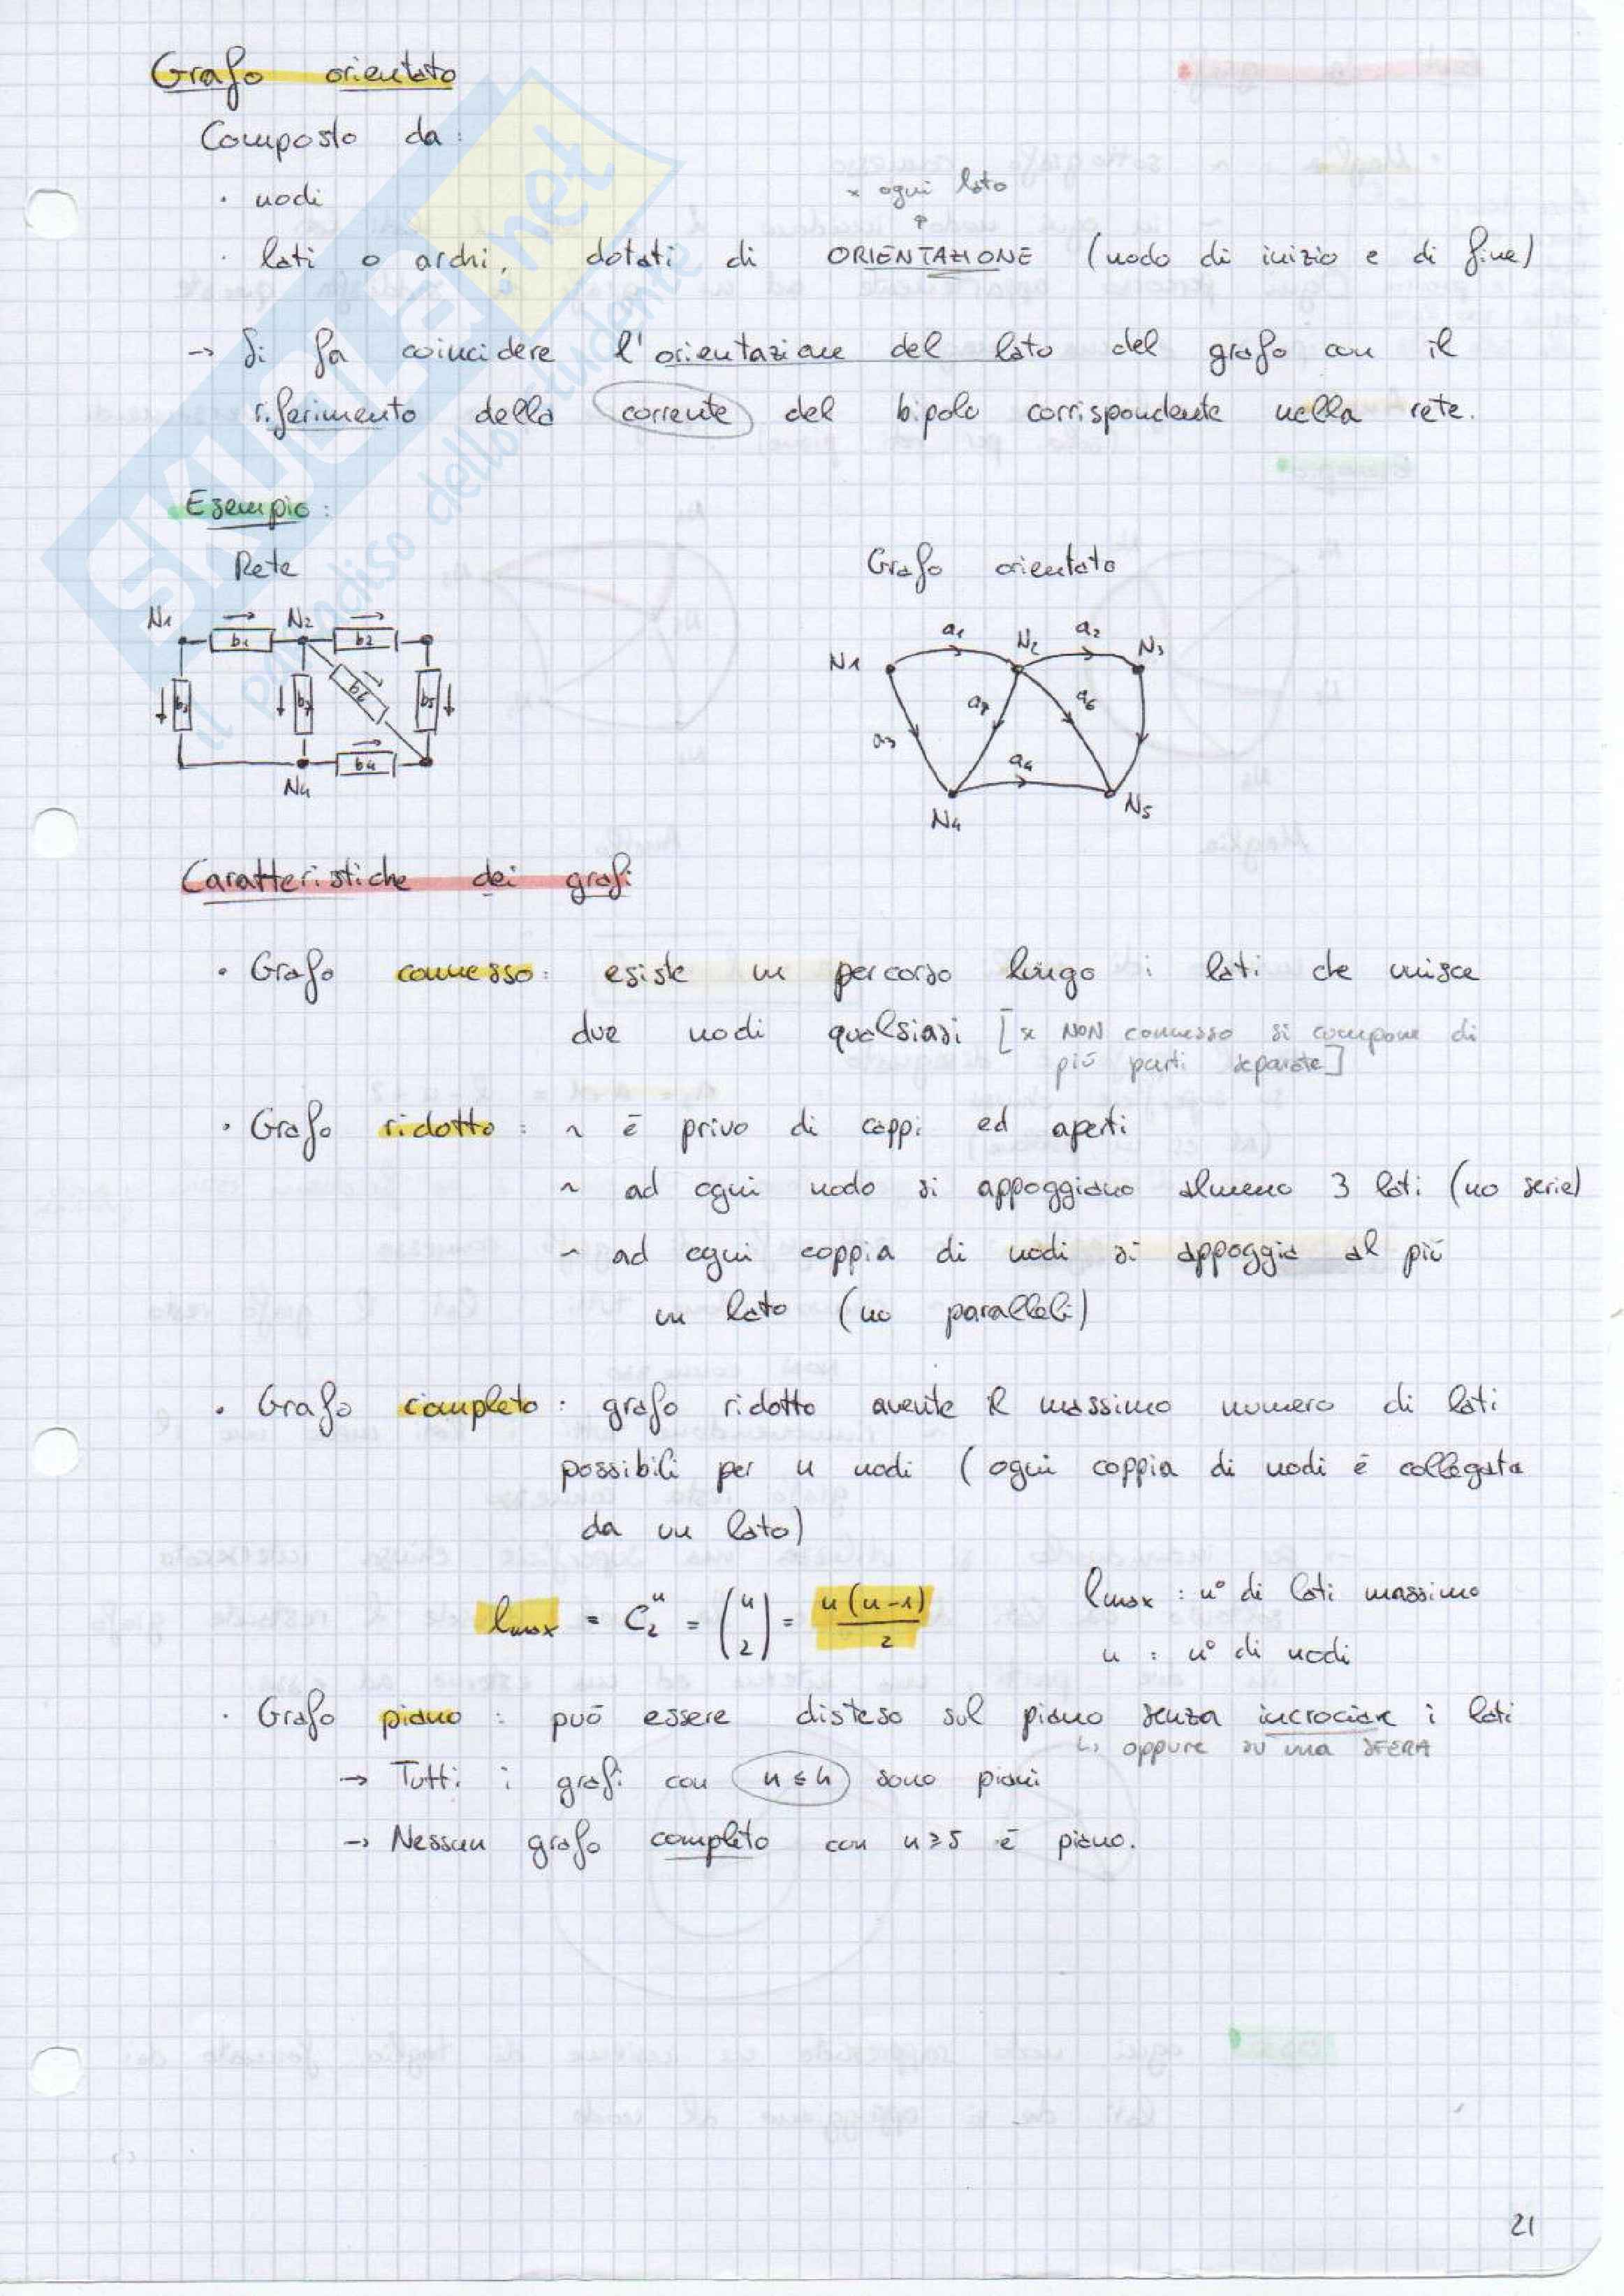 Grafo orientato
Composto da:
· nodi
x ogni lato
· lati o archi, dotati di ORIENTAZIONE (nodo di inizio e di fine)
→ Si fa coincidere l'orientazione del lato del grafo con il
riferimento della corrente del bipolo corrispondente nella rete.
Esempio:
Rete
Grafo orientato
N1 N2
b1 b2
b3 b7 b6 b5
b4
N4
a1 a2
N1 N2 N3
a7 a6
a3
a4
N4 N5
Caratteristiche dei grafi
· Grafo connesso: esiste un percorso lungo i lati che unisce
due nodi qualsiasi [x NON connesso si compone di
più parti separate]
· Grafo ridotto: ~ è privo di cappi ed aperti
~ ad ogni nodo si appoggiano almeno 3 lati (no serie)
~ ad ogni coppia di nodi si appoggia al più
un lato (no paralleli)
· Grafo completo: grafo ridotto avente il massimo numero di lati
possibili per n nodi (ogni coppia di nodi è collegata
da un lato)
lmax = C₂ⁿ = (n 2) = n(n-1)/2
lmax : n° di lati massimo
n : n° di nodi
· Grafo piano : può essere disteso sul piano senza incrociare i lati
↳ oppure su una SFERA
→ Tutti i grafi con n≤4 sono piani
→ Nessun grafo completo con n≥5 è piano.
21
SKUOLA.net
il paradiso dello studente